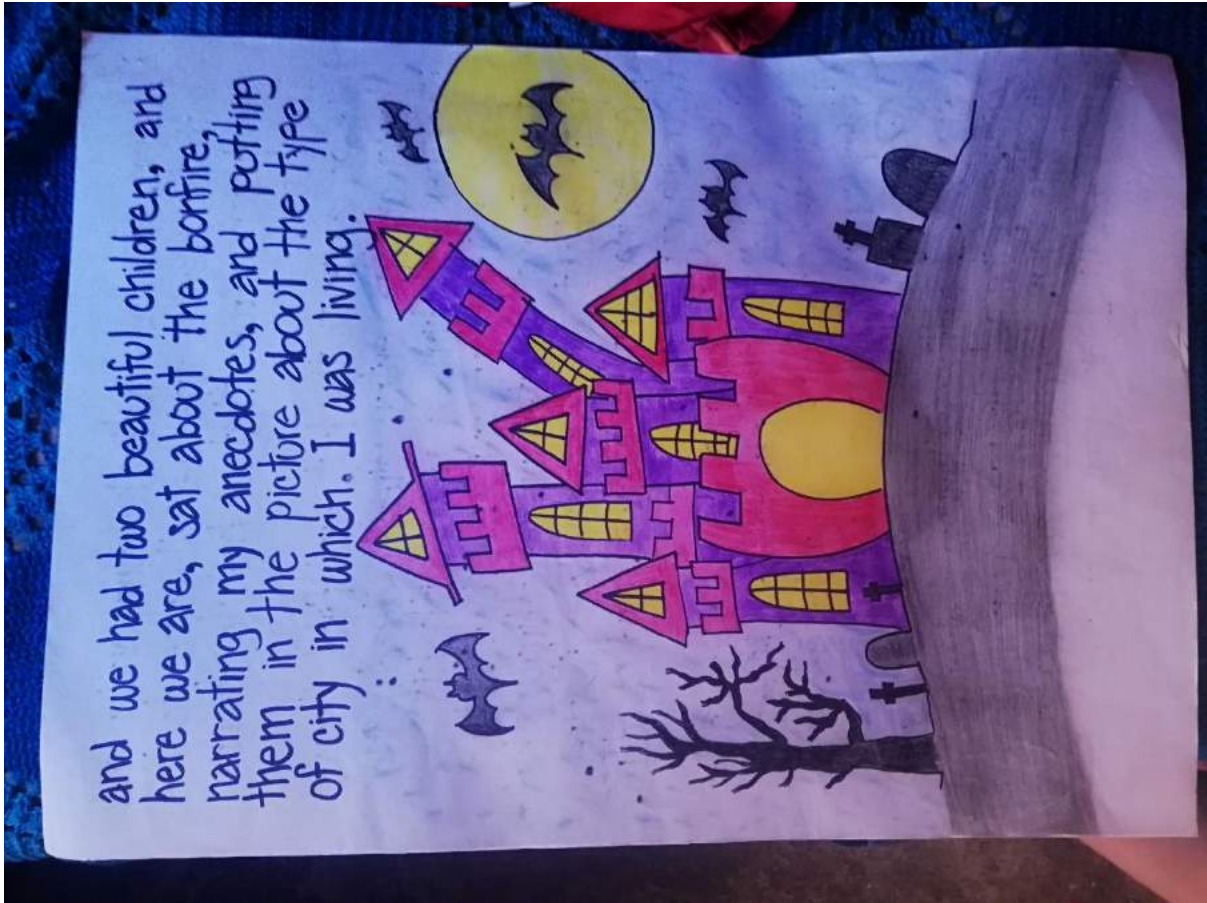 and we had two beautiful children, and
here we are, sat about the bonfire,
narrating my anecdotes, and putting
them in the picture about the type
of city in which. I was living.